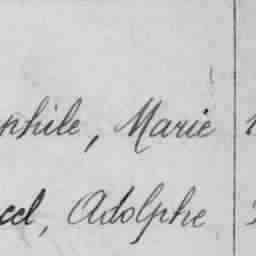 phile, Marie
cel, Adolphe